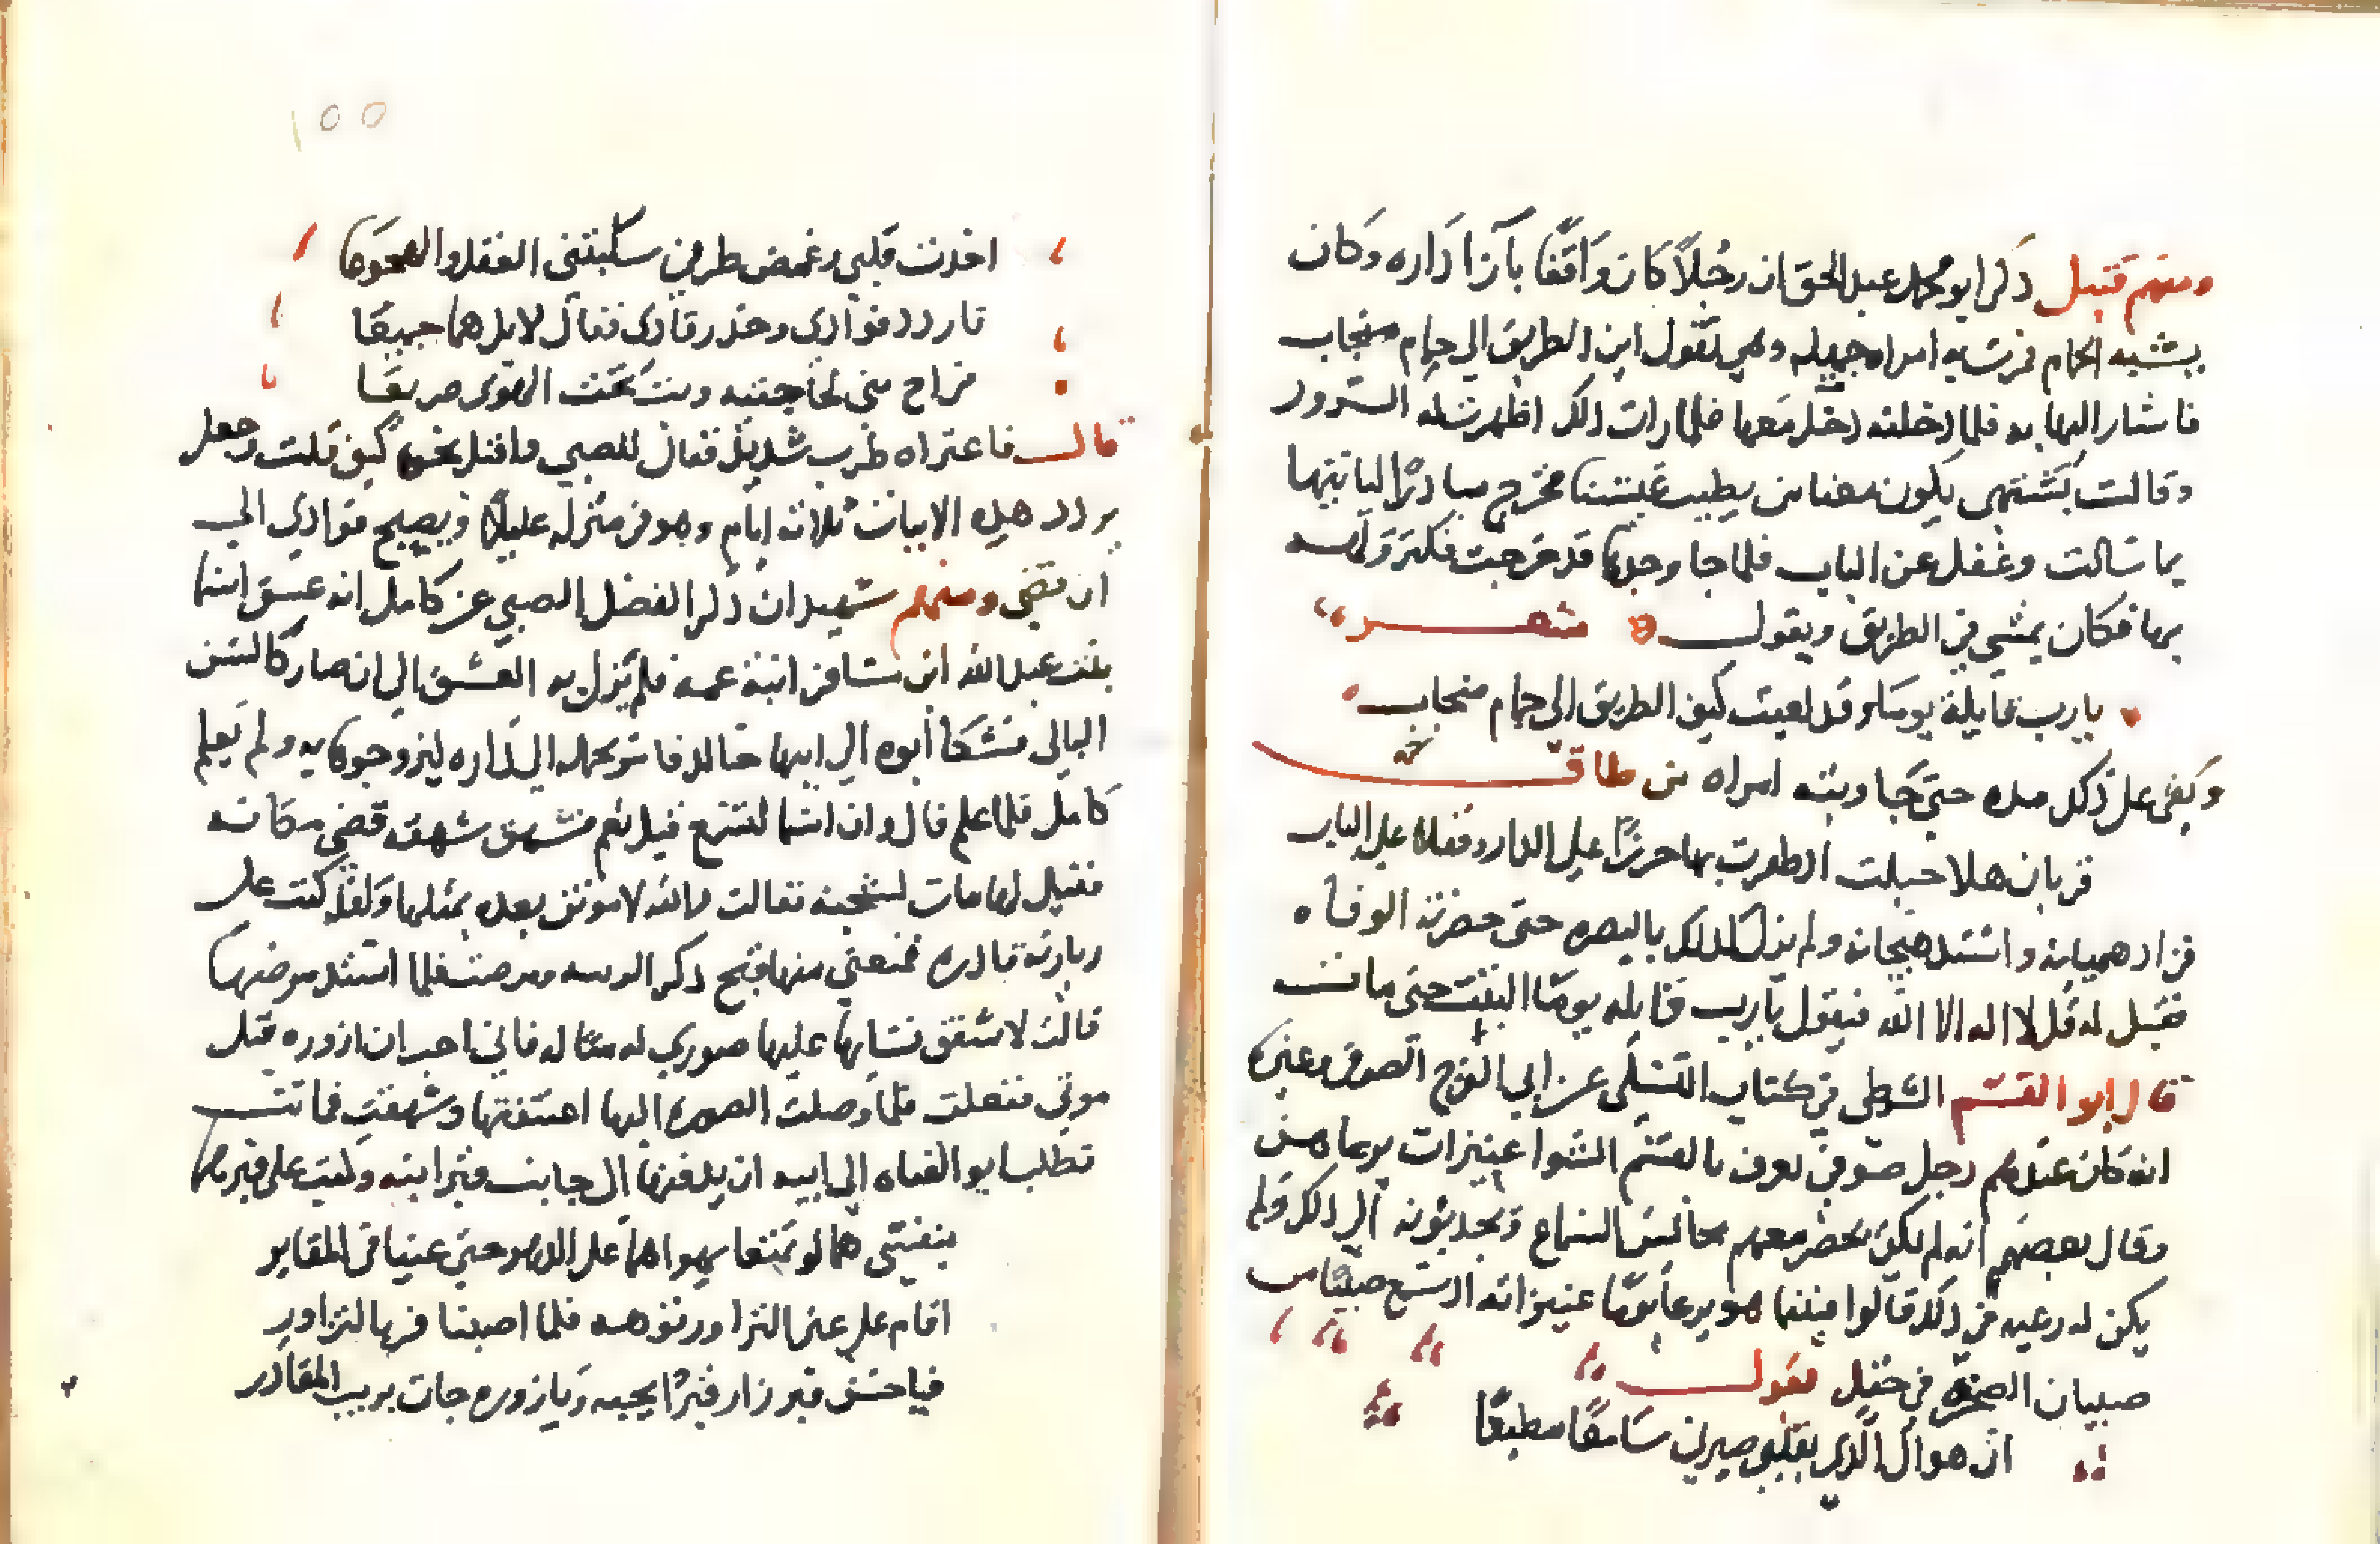 ومنهم قتيل ذكر ابو محمد عبد الحق ان رجلاً كان واقفا بازا داره وكان
يشبه الحمام فمرت به امراه جميله وهي تقول اين الطريق الي حمام منجاب
فاشار اليها به فلما دخلته دخل معها فلما رات ذلك اظهرت له السرور
وقالت يشتهى يكون معنا من يطيب عيشتنا فخرج مبادرًا لياتيها
بما سالت وغفل عن الباب فلما جا وجدها قد خرجت فكثر ولهه
بها فكان يمشي في الطريق ويقول شعر
يا رب قايلة يوما وقد لعبت كيف الطريق الي حمام منجاب
وبقى على ذلك مده حتى جاوبته امراه من طاقه
قربان هلا حبلت اذ ظفرت بها حرزًا على الدار وقفلا على الباب
فزاد هميانه واشتد هيجانه ولم يزل كذلك بالبصره حتى حضرته الوفاه
فقيل له قل لا اله الا الله فيقول يارب قايله يومًا البيت حتى مات
قال ابو القسم الشطى في كتاب التسلى عن ابي الفرج الصوفى وغيره
انه كان عندهم رجل صوفى يعرف بالقسم الشوا عنيزات يرعاهن
وقال بعضهم انه لم يكن يحضر معهم مجالس السماع ويجذبونه الى ذلك ولم
يكن له رغبه في ذلك قالوا فبينما هو يرعا يومًا عنيزاته اذ سمع صبيًا من
صبيان الصحرا في حقل يقول
ان هواك الذي بقلبي صيرني سامعًا مطيعًا
١٥٥
اخذت قلبي وغمض طرفي سلبتنى العقل والهجوعا
فاردد فوادى وخذ رقادى فقال لا بل هما جميعًا
فراح منى لحاجتيه وبت تحت الهوى صريعًا
قال فاعتراه طرب شديد فقال للصبي كيف قلت وجعل
يردد هذه الابيات ثلاثة ايام وهو في منزله عليلًا ويصيح فوادي الى
ان قضى ومنهم شهيدان ذكر الفضل الصبي عن كامل انه عشق اسما
بنت عبد الله ابن مسافر ابنة عمه فلم يزل به العشق الى ان صار كالشن
البالى فشكا ابوه الى ابيها حاله فامر بحمله الى داره ليزوجوها به ولم يعلم
كامل فلما علم قال وان اسما لتسمع قيل نعم فشهق شهقه قضى مكانه
فقيل لها مات لشجنه فقالت والله لاموتن بعده بمثلها ولقد كنت على
زيارته قادره فمنعنى منها قبح ذكر الريبه ومرضت فلما اشتد مرضها
قالت لاشفق نسايها عليها صوري له مثاله فاني احب ان ازوره قبل
موتى ففعلت فلما وصلت الصوره اليها اعتنقتها وشهقت فماتت
فطلب ابو الفتاه الى ابيه ان يدفنها الى جانب قبر ابنه وكتب على قبرهما
بنفسى هما لو تمتعا بهواهما على الدهر حتى غيبا فى المقابر
اقاما على غير التزاور فلما اصيبا قربا لتزاور
فيا حسن قبر زار قبرًا يحبه ويا زوره جات بريب المقادر